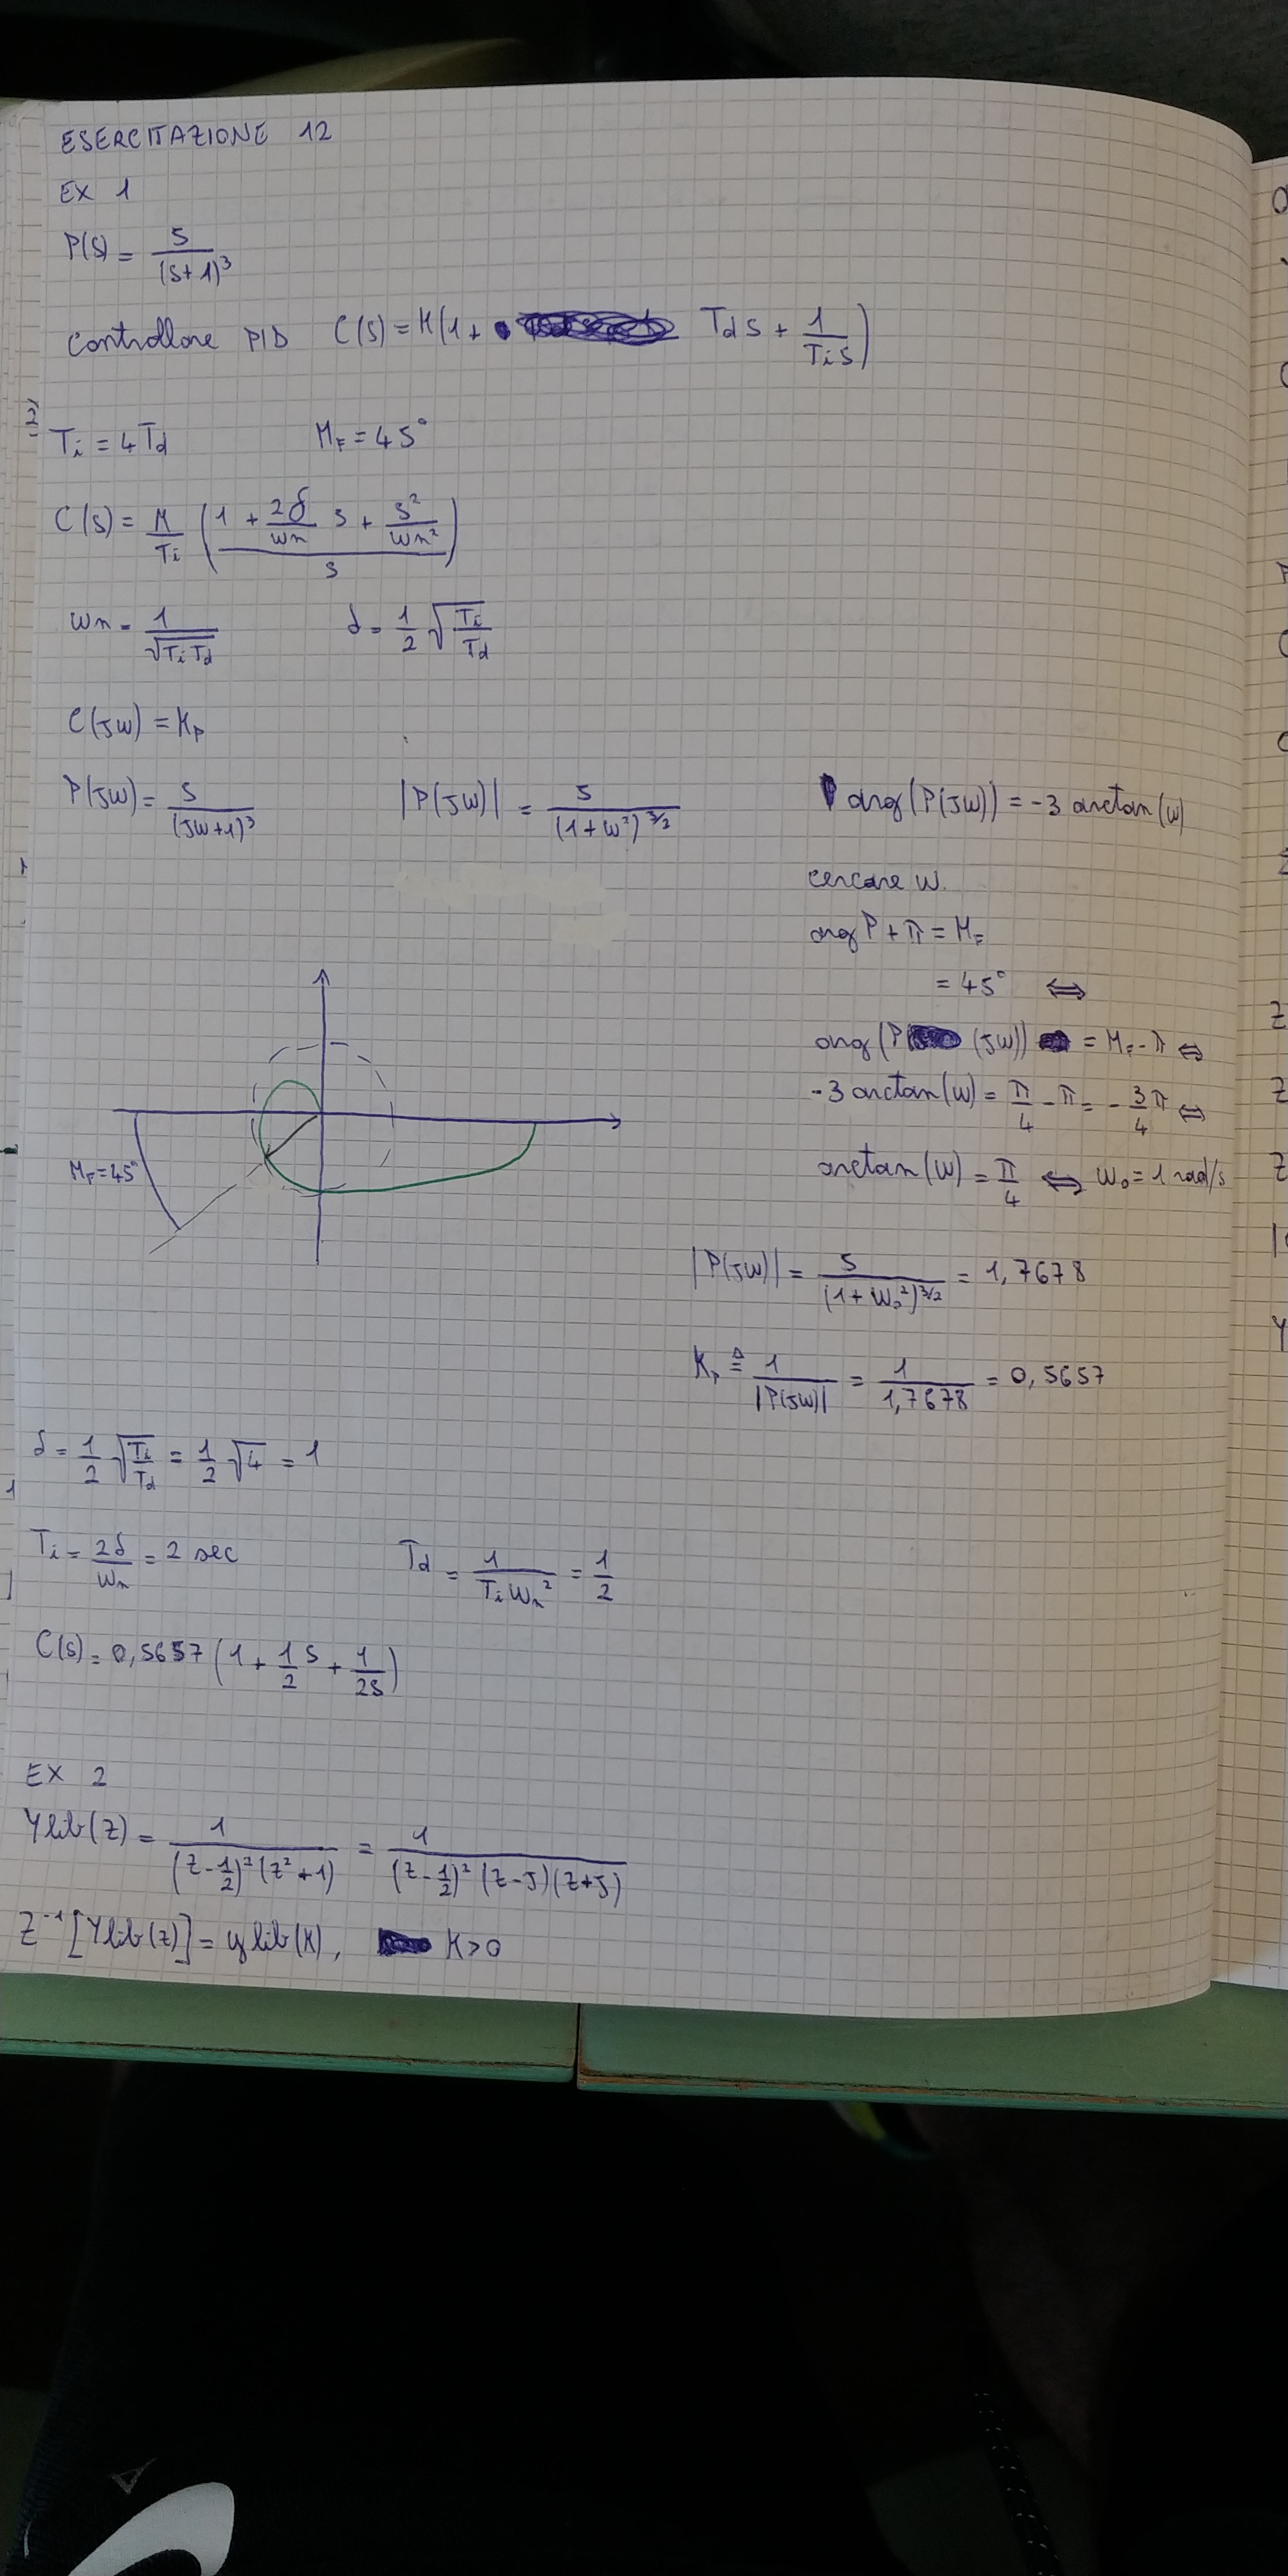 ESERCITAZIONE 12
EX 1
P(s) = 5/(s+1)^3
controllore PID C(s) = K(1 + Td s + 1/(Ti s))
Ti = 4Td MF = 45°
C(s) = K/Ti ((1 + 2δ/wn s + s^2/wn^2)/s)
wn = 1/√(Ti Td) δ = 1/2 √(Ti/Td)
C(jw) = Kp
P(jw) = 5/(jw+1)^3 |P(jw)| = 5/(1+w^2)^3/2 arg(P(jw)) = -3 arctan(w)
cercare w.
arg P + π = MF
= 45° ⟺
arg(P (jw)) = MF - π ⟺
-3 arctan(w) = π/4 - π = -3/4 π ⟺
MF=45°
arctan(w) = π/4 ⟺ w0 = 1 rad/s
|P(jw)| = 5/(1+w0^2)^3/2 = 1,7678
Kp ≜ 1/|P(jw)| = 1/1,7678 = 0,5657
δ = 1/2 √(Ti/Td) = 1/2 √4 = 1
Ti = 2δ/wn = 2 sec Td = 1/(Ti wn^2) = 1/2
C(s) = 0,5657 (1 + 1/2 s + 1/2s)
EX 2
Ylib(z) = 1/((z-1/2)^2 (z^2+1)) = 1/((z-1/2)^2 (z-j)(z+j))
Z^-1 [Ylib(z)] = ylib(K), K>0